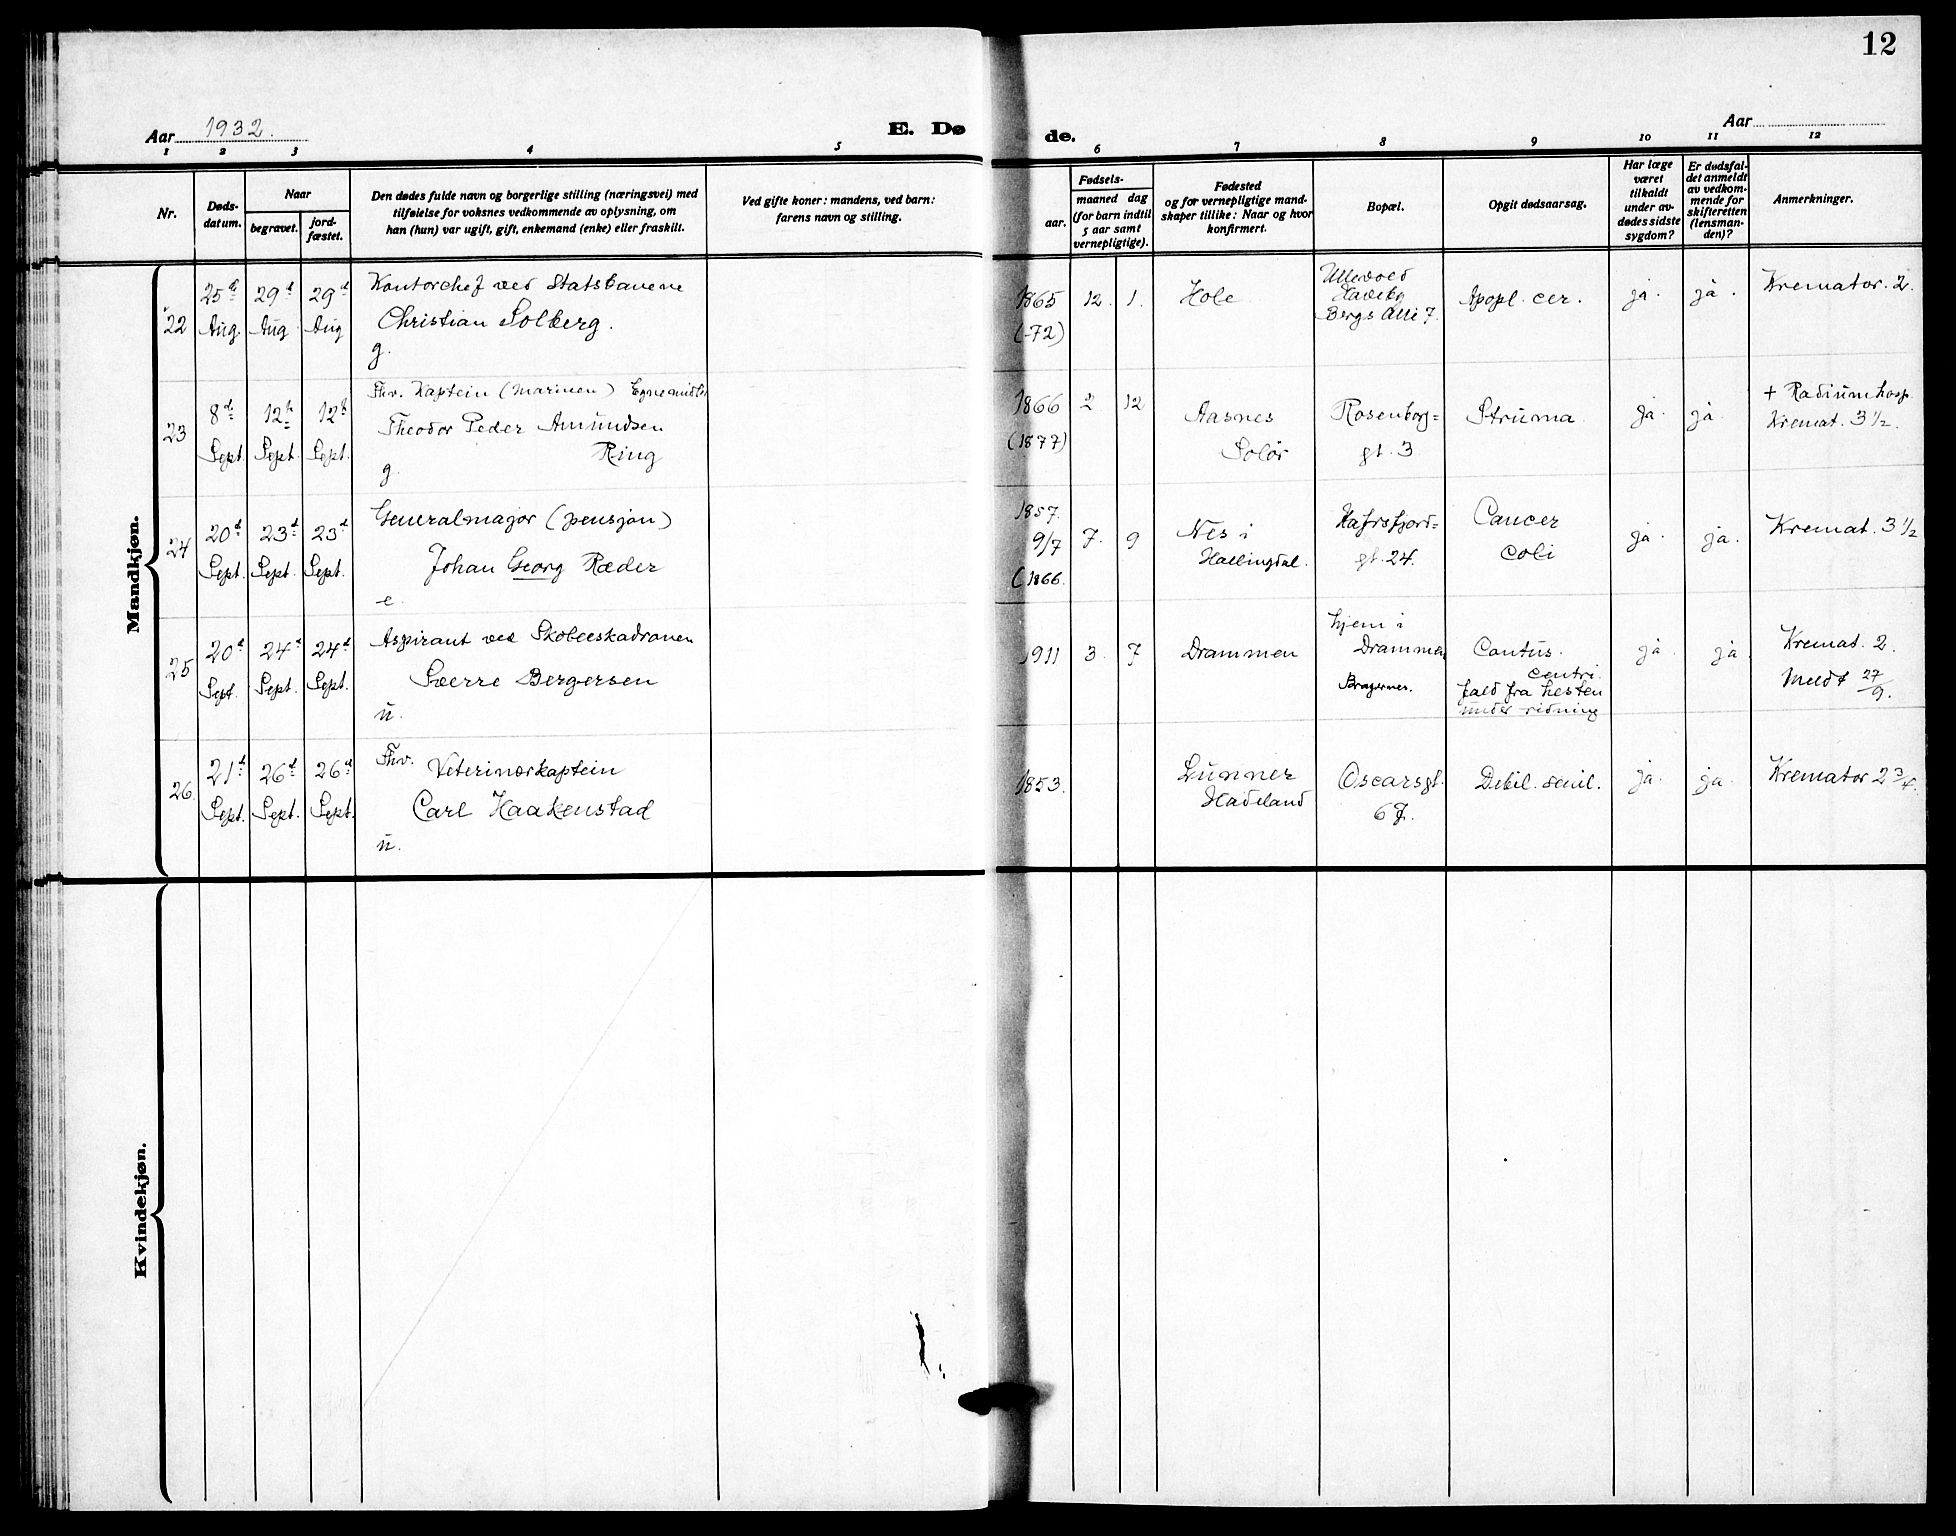 12
Aar 1932.
E. Dø
de.
Aar
1 2 3 4 5 6 7 8 9 10 11 12
Nr.
Døds-
datum.
Naar
begravet.
jord-
fæstet.
Den dødes fulde navn og borgerlige stilling (næringsvei) med
tilføielse for voksnes vedkommende av oplysning, om
han (hun) var ugift, gift, enkemand (enke) eller fraskilt.
Ved gifte koner: mandens, ved barn:
farens navn og stilling.
Fødsels-
aar.
maaned dag
(for barn indtil
5 aar samt
vernepligtige).
Fødested
og for vernepligtige mand-
skaper tillike: Naar og hvor
konfirmert.
Bopæl.
Opgit dødsaarsag.
Har læge
været
tilkaldt
under av-
dødes sidste
sygdom?
Er dødsfal-
det anmeldt
av vedkom-
mende for
skifteretten
(lensman-
den)?
Anmerkninger.
Mandkjøn.
22
25d
Aug.
29d
Aug.
29d
Aug
Kontorchef ved Statsbanene
Christian Solberg.
g.
1865
(-72)
12.
1.
Hole
Ullevold
Haveby
Bergs Allé 7.
Apopl. cer.
ja.
ja.
Kremator. 2.
23
8d
Sept.
12t
Sept.
12t
Sept.
Fhv. Kaptein (Marinen)
Theodor Peder Amundsen
Ring
g.
1866
(1877)
2
12
Aasnes
Solør
Rosenborg=
gt. 3
Struma
ja.
ja
+ Radiumhosp.
Kremat. 3½.
24
20d
Sept.
23d
Sept.
23d
Sept.
Generalmajor (pensjon)
Johan Georg Ræder
e.
1857.
9/7
(1866.
7.
9
Nes i
Hallingdal.
Hafrsfjord=
gt. 24.
Cancer
coli
ja.
ja.
Kremat. 3½
25
20d
Sept.
24d
Sept.
24d
Sept.
Aspirant ved Skoleeskadronen
Sverre Bergersen
u.
1911
3.
7
Drammen
hjem i
Drammen
Bragernes.
Contus.
centri.
fald fra hesten
under ridning
ja
ja.
Kremat. 2.
Meldt 27/9.
26.
21d
Sept.
26d
Sept.
26d
Sept.
Fhv. Veterinærkaptein
Carl Haakenstad
u.
1853.
Lunner
Hadeland
Oscarsgt.
67.
Debil. senil.
ja.
ja.
Kremator 2¾.
Kvindekjøn.